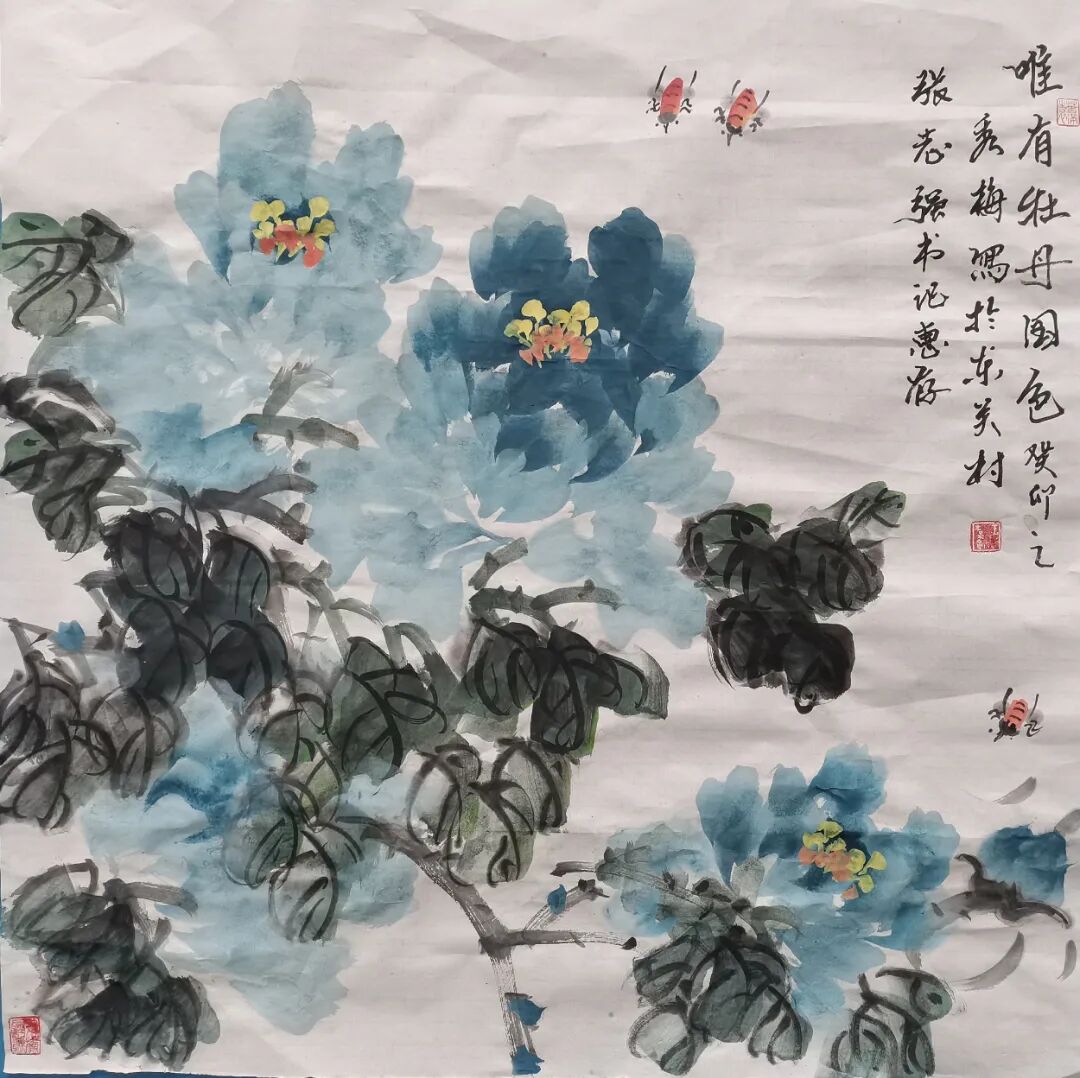 唯有牡丹国色癸卯之
秀梅写於东关村
张志强书记惠存